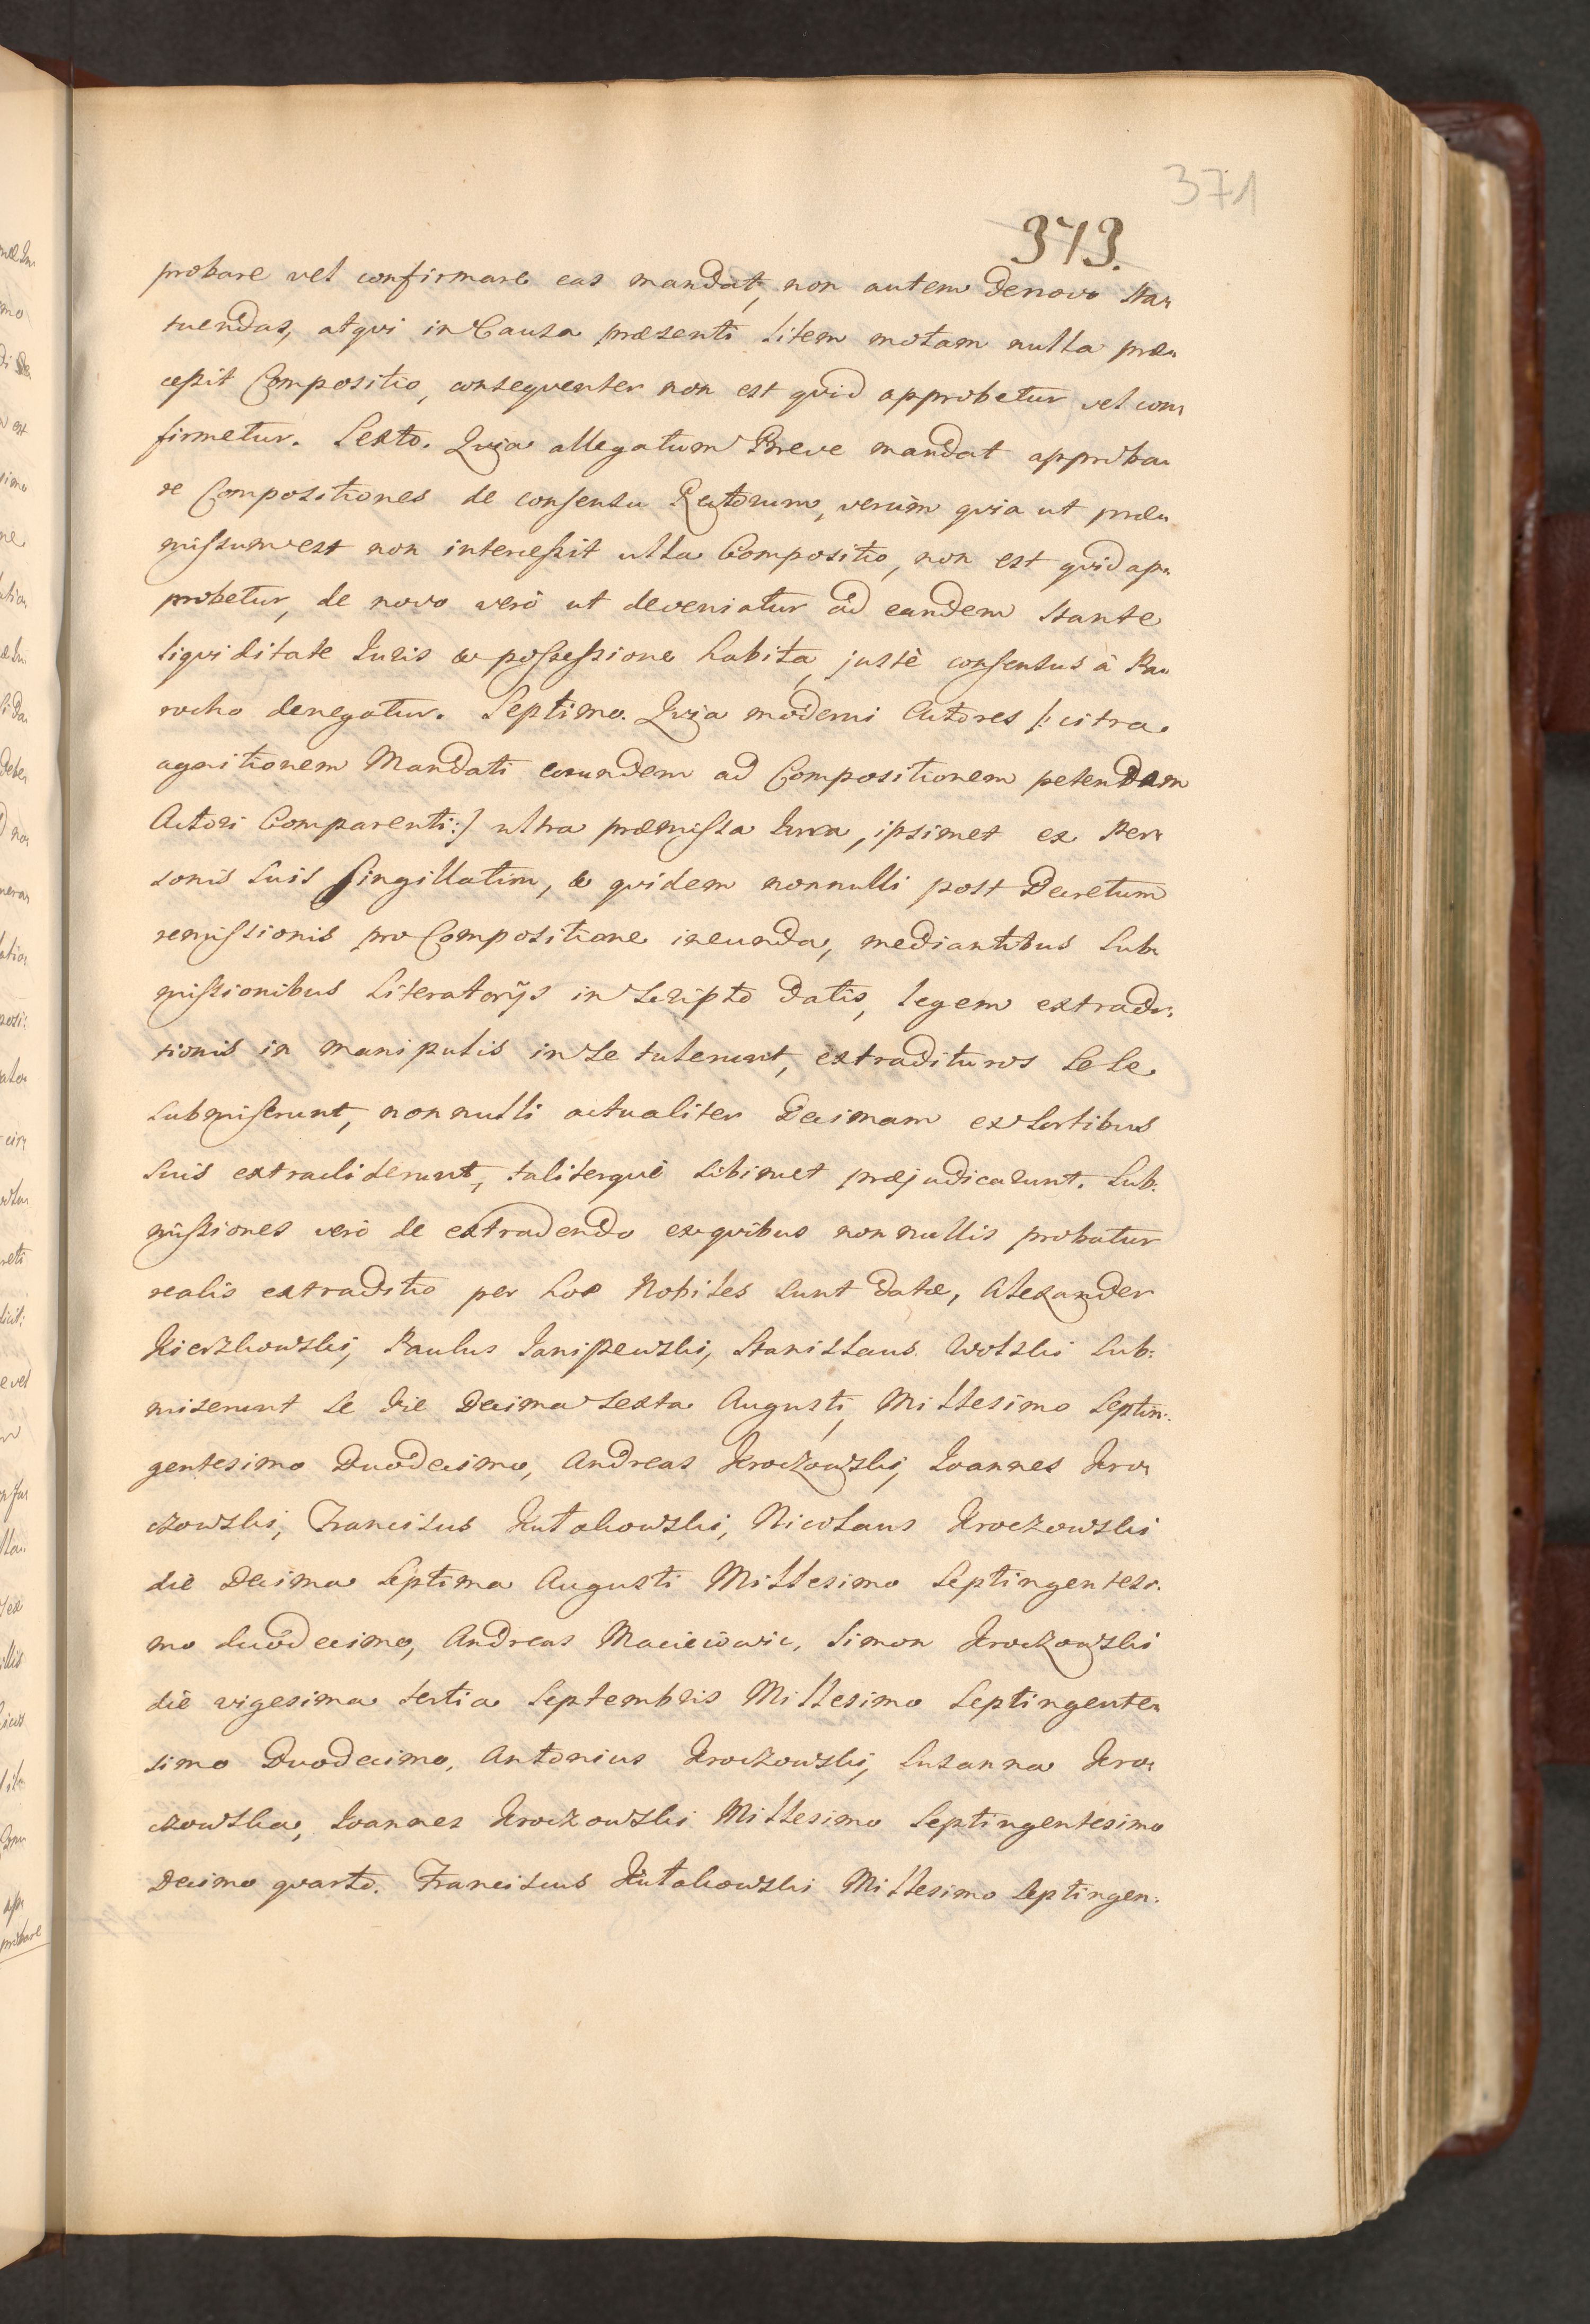 371
373.
probare vel confirmare eas mandat, non autem denovo sta-
tuendas, atqvi in Causa præsenti litem motam nulla præ-
cessit Compositio, conseqventer non est qvid approbetur vel con-
firmetur. Sexto. Qvia allegatum Breve mandat approba-
re Compositiones de consensu Rectorum, verùm qvia ut præ-
missum est non intercessit ulla Compositio, non est qvid ap-
probetur, de novo verò ut deveniatur ad eandem stante
liqviditate Iuris & possessione habita, justè consensus à Pa-
rocho denegatur. Septimo. Qvia moderni Actores /: citra
agnitionem Mandati eorundem ad Compositionem petendam
Actori Comparenti :/ ultra præmissa Iura, ipsimet ex Per-
sonis suis singillatim, & qvidem nonnulli post Decretum
remissionis pro Compositione ineunda, mediantibus Sub-
missionibus Literatorijs in Scripto datis, legem extradi-
tionis in manipulis in se tulerunt, extradituros se se
submiserunt, nonnulli actualiter Decimam ex Sortibus
suis extradiderunt, taliterqvè sibimet præjudicarunt. Sub-
missiones verò de extradendo ex qvibus nonnullis probatur
realis extraditio per hos Nobiles sunt datæ, Alexander
Kierzkowski, Paulus Janiszewski, Stanislaus Wolski sub-
miserunt se die Decima Sexta Augusti, Millesimo Septin-
gentesimo Duodecimo, Andreas Kroczowski, Ioannes Kro-
czowski, Franciscus Kutakowski, Nicolaus Kroczowski
die Decima Septima Augusti Millesimo Septingentesi-
mo duodecimo, Andreas Macieiowic, Simon Kroczowski
die vigesima tertia Septembris Millesimo Septingente-
simo Duodecimo, Antonius Kroczowski, Susanna Kro-
czowska, Ioannes Kroczowski Millesimo Septingentesimo
Decimo qvarto. Franciscus Kutakowski Millesimo Septingen-